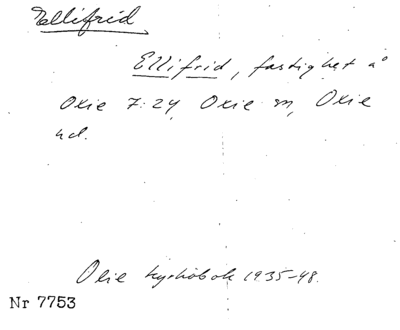 Ellifrid
Ellifrid, fastighet å
Oxie 7:24, Oxie sn, Oxie
hd.
Oxie kyrkobok 1935-48.
Nr 7753